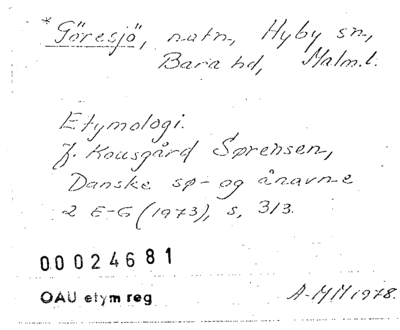 *Göresjö, natn, Hyby sn,
Bara hd, Malm.l.
Etymologi.
J. Kousgård Sørensen,
Danske sø- og ånavne
2 E-G (1973), s. 313.
00024681
OAU etym reg
A-MM 1978.